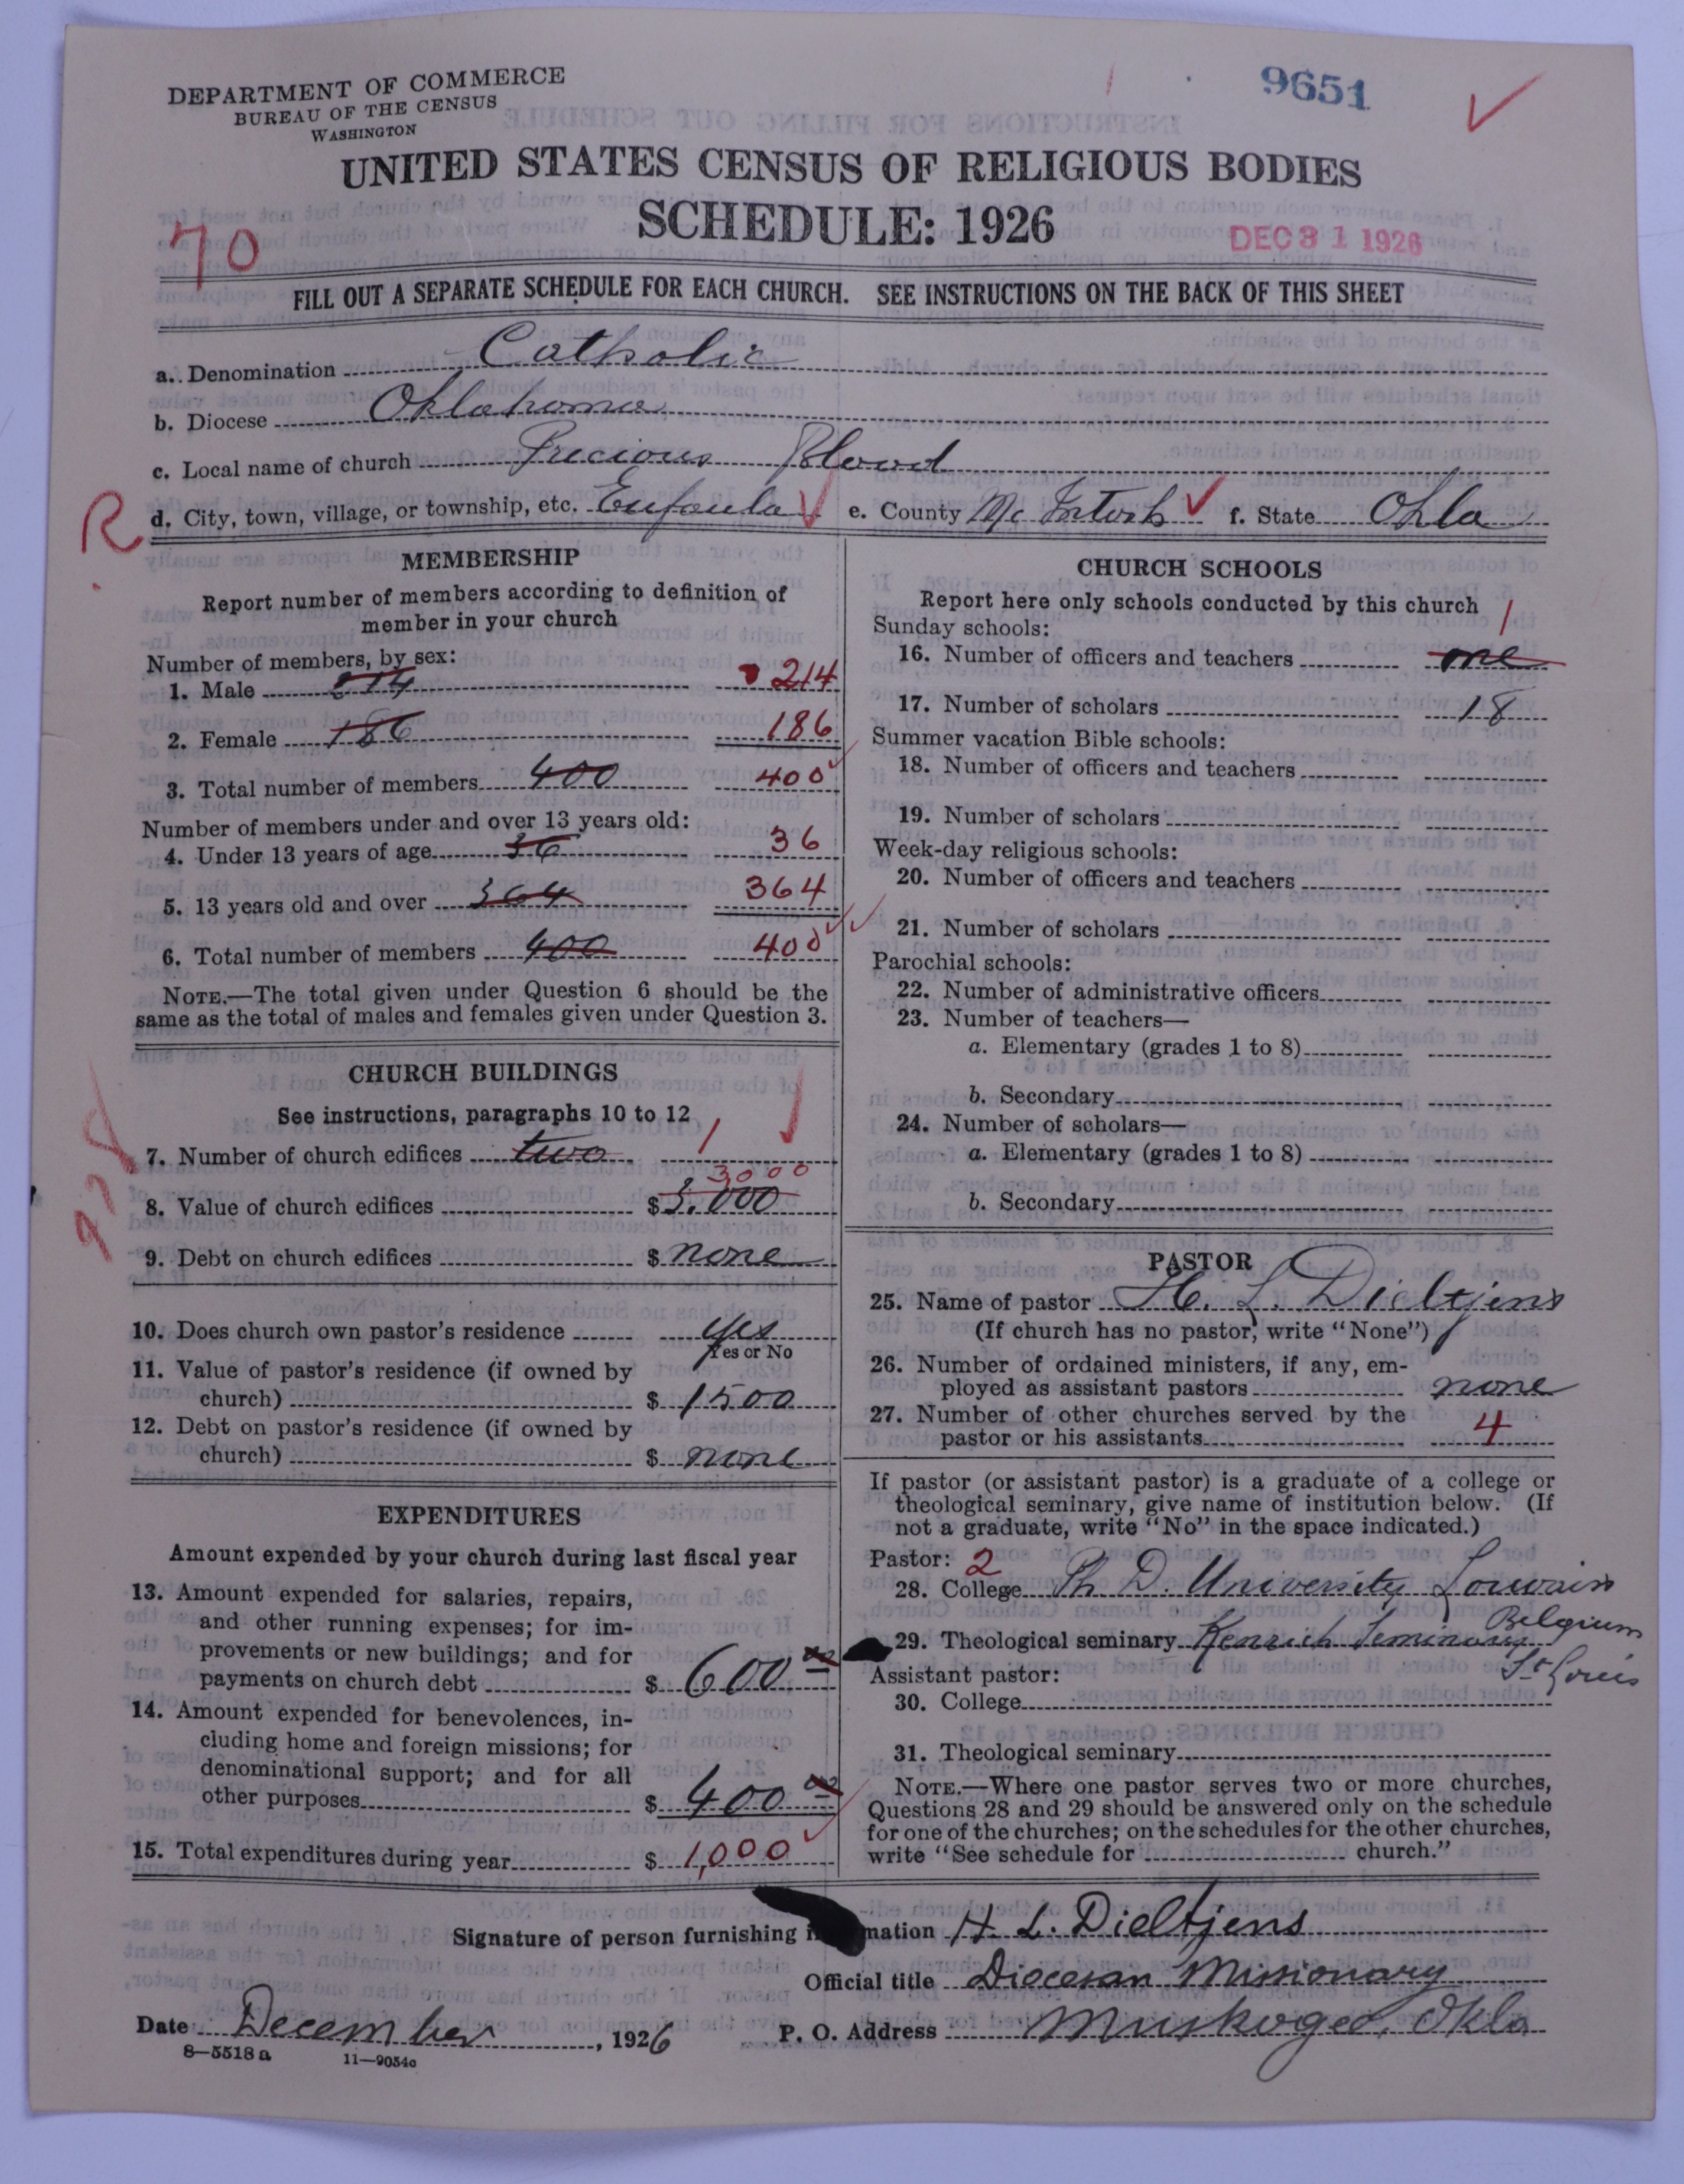 DEPARTMENT OF COMMERCE
BUREAU OF THE CENSUS
WASHINGTON
9651
UNITED STATES CENSUS OF RELIGIOUS BODIES
SCHEDULE: 1926
70
DEC 31 1926
FILL OUT A SEPARATE SCHEDULE FOR EACH CHURCH. SEE INSTRUCTIONS ON THE BACK OF THIS SHEET
a. Denomination Catholic
b. Diocese Oklahoma
c. Local name of church Precious Blood
R
d. City, town, village, or township, etc. Eufaula e. County McIntosh f. State Okla
MEMBERSHIP
Report number of members according to definition of
member in your church
Number of members, by sex:
1. Male 214 214
2. Female 186 186
3. Total number of members 400 400
Number of members under and over 13 years old:
4. Under 13 years of age 36 36
5. 13 years old and over 364 364
6. Total number of members 400 400
NOTE.—The total given under Question 6 should be the
same as the total of males and females given under Question 3.
CHURCH BUILDINGS
See instructions, paragraphs 10 to 12
7. Number of church edifices two 1
3000
8. Value of church edifices $3.000
9. Debt on church edifices $ none
10. Does church own pastor's residence yes
Yes or No
11. Value of pastor's residence (if owned by
church) $ 1500
12. Debt on pastor's residence (if owned by
church) $ none
EXPENDITURES
Amount expended by your church during last fiscal year
13. Amount expended for salaries, repairs,
and other running expenses; for im-
provements or new buildings; and for
payments on church debt $ 600 00
14. Amount expended for benevolences, in-
cluding home and foreign missions; for
denominational support; and for all
other purposes $ 400 00
15. Total expenditures during year $ 1,000
CHURCH SCHOOLS
Report here only schools conducted by this church
Sunday schools:
1
16. Number of officers and teachers one
17. Number of scholars 18
Summer vacation Bible schools:
18. Number of officers and teachers
19. Number of scholars
Week-day religious schools:
20. Number of officers and teachers
21. Number of scholars
Parochial schools:
22. Number of administrative officers
23. Number of teachers—
a. Elementary (grades 1 to 8)
b. Secondary
24. Number of scholars—
a. Elementary (grades 1 to 8)
b. Secondary
PASTOR
25. Name of pastor H. L. Dieltjens
(If church has no pastor, write "None")
26. Number of ordained ministers, if any, em-
ployed as assistant pastors none
27. Number of other churches served by the
pastor or his assistants 4
If pastor (or assistant pastor) is a graduate of a college or
theological seminary, give name of institution below. (If
not a graduate, write "No" in the space indicated.)
Pastor: 2
28. College Ph. D. University Louvain
Belgium
29. Theological seminary Kenrich Seminary
St Louis
Assistant pastor:
30. College
31. Theological seminary
NOTE.—Where one pastor serves two or more churches,
Questions 28 and 29 should be answered only on the schedule
for one of the churches; on the schedules for the other churches,
write "See schedule for church."
Signature of person furnishing mation H. L. Dieltjens
Official title Diocesan Missionary
Date December, 1926 P. O. Address Muskogee, Okla
8—5518 a 11—9054c